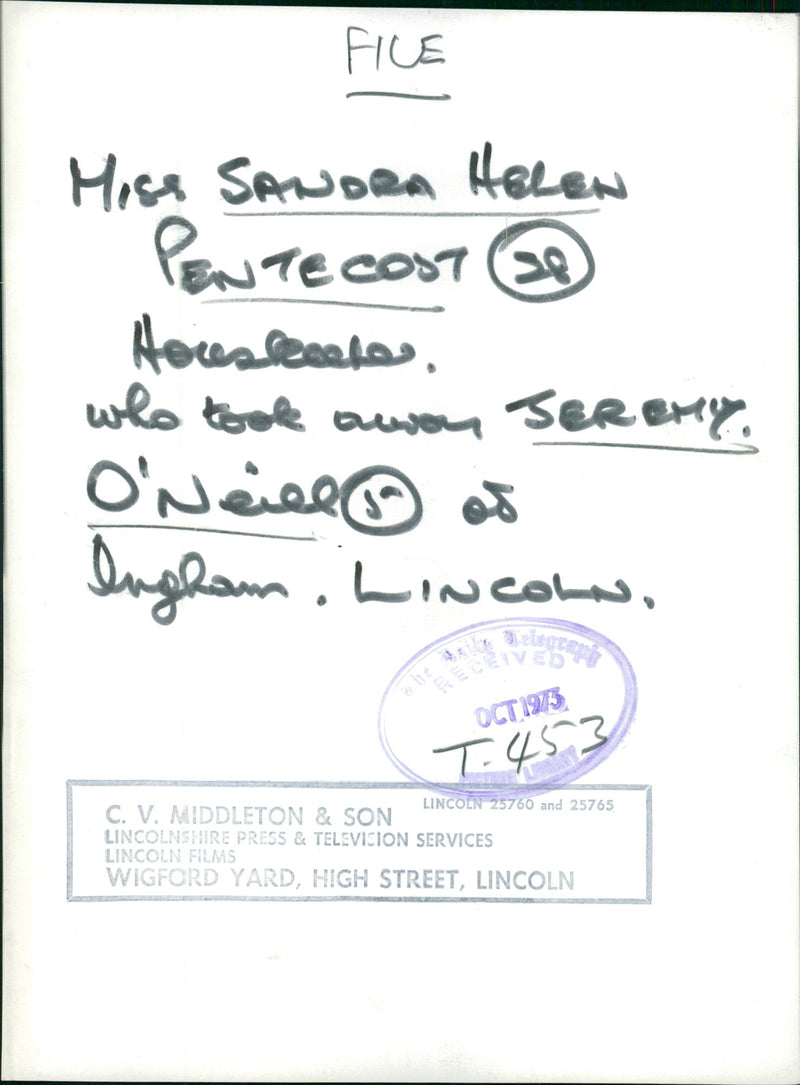 FILE
MISS SANDRA HELEN
PENTECOST 38
Housekeeper.
who took away JEREMY.
O'Neill 5 of
Ingham. LINCOLN.
The Daily Telegraph
RECEIVED
OCT 1973
T-453
PICTURE LIBRARY
LINCOLN 25760 and 25765
C. V. MIDDLETON & SON
LINCOLNSHIRE PRESS & TELEVISION SERVICES
LINCOLN FILMS
WIGFORD YARD, HIGH STREET, LINCOLN